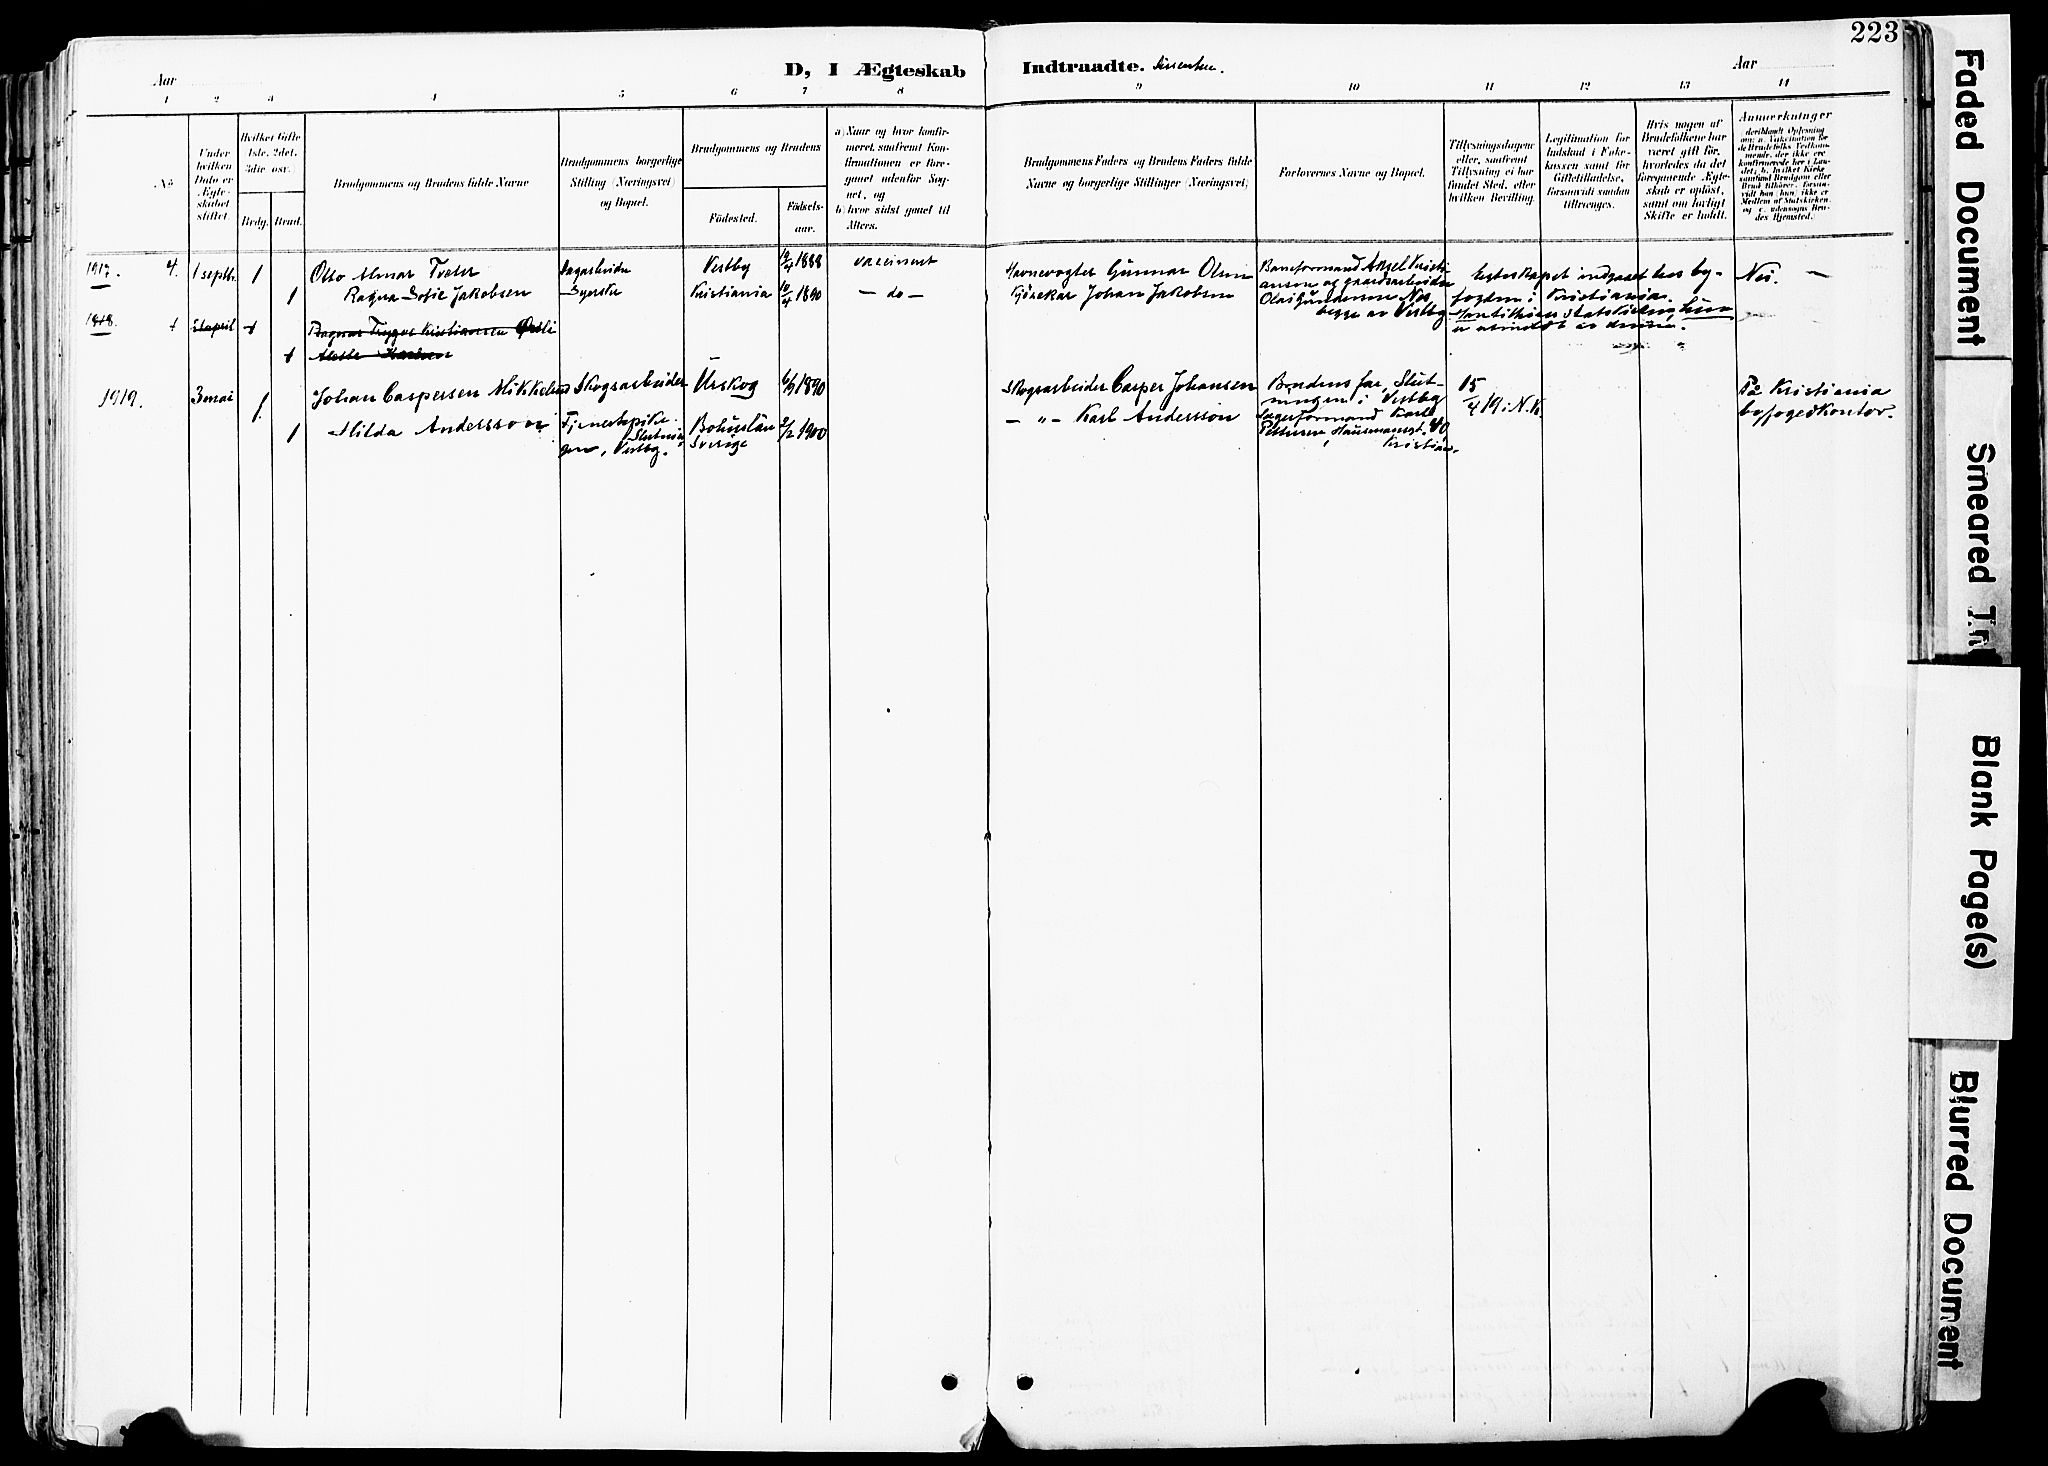 223
Aar
D, I Ægteskab Indtraadte. Dissentere.
Aar
1 2 3 4 5 6 7 8 9 10 11 12 13 14
No
Under hvilken Dato er Ægteskabet stiftet.
Hvilket Gifte 1ste, 2det, 3die osv.
Brdg. Brud.
Brudgommens og Brudens fulde Navne
Brudgommens borgerlige Stilling (Næringsvei) og Bopæl.
Brudgommens og Brudens
Fødested.
Fødselsaar.
a) Naar og hvor konfirmeret, saafremt Konfirmationen er foregaaet udenfor Sognet, og
b) hvor sidst gaaet til Alters.
Brudgommens Faders og Brudens Faders fulde Navne og borgerlige Stillinger (Næringsvei)
Forlovernes Navne og Bopæl.
Tillysningsdagene eller, saafremt Tillysning ei har fundet Sted, efter hvilken Bevilling.
Legitimation for Indskud i Enkekassen samt for Giftetilladelse, forsaavidt saadan tiltrænges.
Hvis nogen af Brudefolkene har været gift før, hvorledes da det foregaaende Ægteskab er opløst, samt om lovligt Skifte er holdt.
Anmerkninger
(deriblandt Oplysning om: a. Vakcination for de Brudefolks Vedkommende, der ikke ere konfirmerede her i Landet; b. hvilket Kirkesamfund Brudgom eller Brud tilhører, forsaavidt han (hun) ikke er Medlem af Statskirken, og c. udensogns Brudes Hjemsted.
1917. 4. 1 septbr. 1 Otto Almar Tveter Sagarbeider Vestby 12/4 1888 vaccinert Havnevogter Gunnar Olsen Baneformand Aksel Kristiansen og gaardsarbeider Olai Gundersen Nes, begge av Vestby.
1 Ragna Sofie Jakobsen Syerske Kristiania 10/4 1890 — do — Kjørekar Johan Jakobsen
Egteskapet indgaaet hos byfogden i Kristiania. Han tilhører statskirken, hun er utmeldt av denne.
Nei. —
1918. 1 21 april 1 Ragnar Trygve Kristiansen
1
1919. 3 mai 1 Johan Caspersen Mikkelsen Skogsarbeider Urskog 6/9 1890 Skogsarbeider Casper Johansen Brudens far, Slutningen i Vestby 15/4 19 i N.K. På Kristiania byfogedkontor.
1 Hilda Andersson Tjenestepike Slutningen, Vestby. Bohuslän Sverige 2/2 1900 — " — Karl Andersson Lagerformand Karl Pettersen, Hausmansgt. 40, Kristiania.
Faded Document
Smeared
Blank Page(s)
Blurred Document